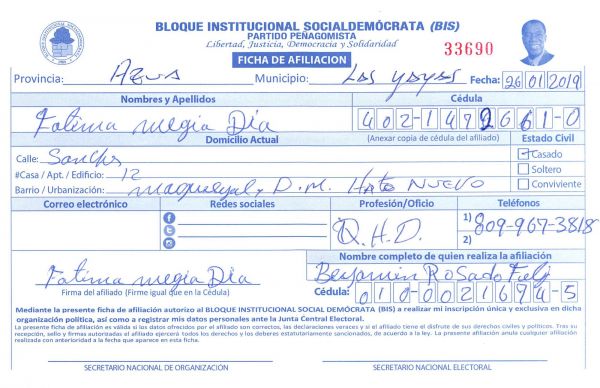 BLOQUE INSTITUCIONAL SOCIALDEMÓCRATA (BIS)
PARTIDO PEÑAGOMISTA
Libertad, Justicia, Democracia y Solidaridad
FICHA DE AFILIACION
33690
Provincia: AZUA Municipio: LAS YAYAS Fecha: 26/01/2019
Nombres y Apellidos Cédula
Fatima Megia Dia 402-1472661-0
Domicilio Actual (Anexar copia de cédula del afiliado) Estado Civil
Calle: Sanches Casado
#Casa / Apt. / Edificio: 12 Soltero
Barrio / Urbanización: D.M. Hato Nuevo Conviviente
Correo electrónico Redes sociales Profesión/Oficio Teléfonos
Q.H.D. 1) 809-967-3818
2)
Nombre completo de quien realiza la afiliación
Fatima Megia Dia Benjamin Rosado
Firma del afiliado (Firme igual que en la Cédula) Cédula: 010-0021694-5
Mediante la presente ficha de afiliación autorizo al BLOQUE INSTITUCIONAL SOCIAL DEMÓCRATA (BIS) a realizar mi inscripción única y exclusiva en dicha
organización política, así como a registrar mis datos personales ante la Junta Central Electoral.
La presente ficha de afiliación es válida si los datos ofrecidos por el afiliado son correctos, las declaraciones veraces y si el afiliado tiene el disfrute de sus derechos civiles y políticos. Tras su
recepción, sello y firma autorizadas el afiliado ejercerá todos los derechos y los deberes estatutariamente sancionados, de acuerdo a la ley. La presente afiliación anula cualquier afiliación
realizada con anterioridad a la fecha que aparece en esta ficha.
SECRETARIO NACIONAL DE ORGANIZACIÓN SECRETARIO NACIONAL ELECTORAL